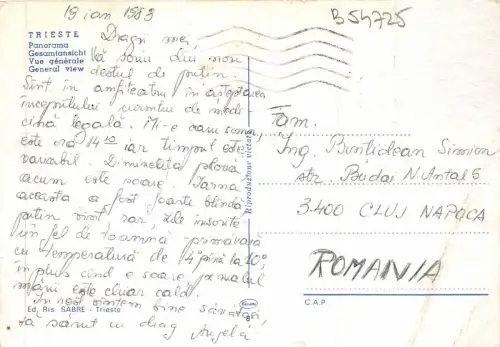 19 ian 1983
B54725
TRIESTE
Panorama
Gesamtansicht
Vue générale
General view
Dragii mei,
Vă scriu din nou
destul de puțin.
Sînt în amfiteatru în așteptarea
începutului cursului de medi
cină legală. Mi-e cam somn,
este ora 14 iar timpul este
variabil. Dimineața ploua
acum este soare. Iarna
aceasta a fost foarte blîndă,
puțin vînt rar, zile însorite
un fel de toamnă primăvară
cu temperatură de 4° pînă la 10°,
în plus cînd e soare pe malul
mării este chiar cald.
În rest sîntem bine sănătoși
vă sărut cu drag Angela
Ed. Ris. SABRE - Trieste
Riproduzione vietata
Fam.
Ing Bunțidean Simion
str. Budai N. Antal 5
3400 CLUJ NAPOCA
ROMANIA
C.A.P